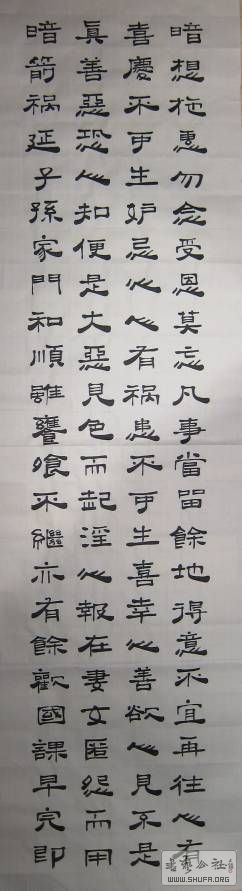 暗想施惠勿念受恩莫忘凡事當留餘地得意不宜再往人有
喜慶不可生妒忌心人有祸患不可生喜幸心善欲人見不是
眞善惡恐人知便是大惡見色而起淫心報在妻女匿怨而用
暗箭祸延子孫家門和順雖饔飧不繼亦有餘歡國課早完即
書藝公社
WWW.SHUFA.ORG